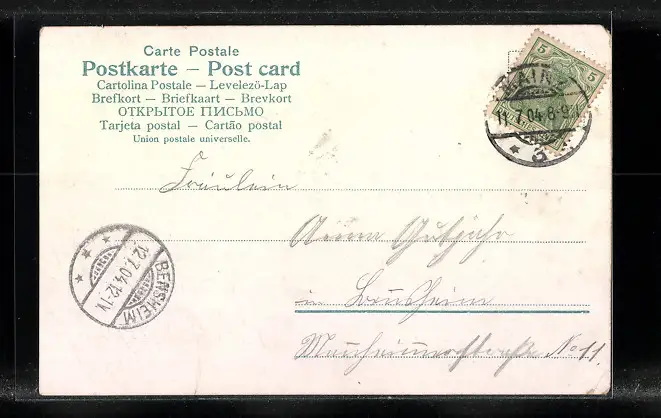 Carte Postale
Postkarte – Post card
Cartolina Postale – Levelező-Lap
Brefkort – Briefkaart – Brevkort
ОТКРЫТОЕ ПИСЬМО
Tarjeta postal – Cartão postal
Union postale universelle.
5 5
MAINZ
11.7.04.8-9
3
Fräulein
Anna Gutjahr
in Bensheim
No 11.
12.7.04.12-1V
BENSHEIM